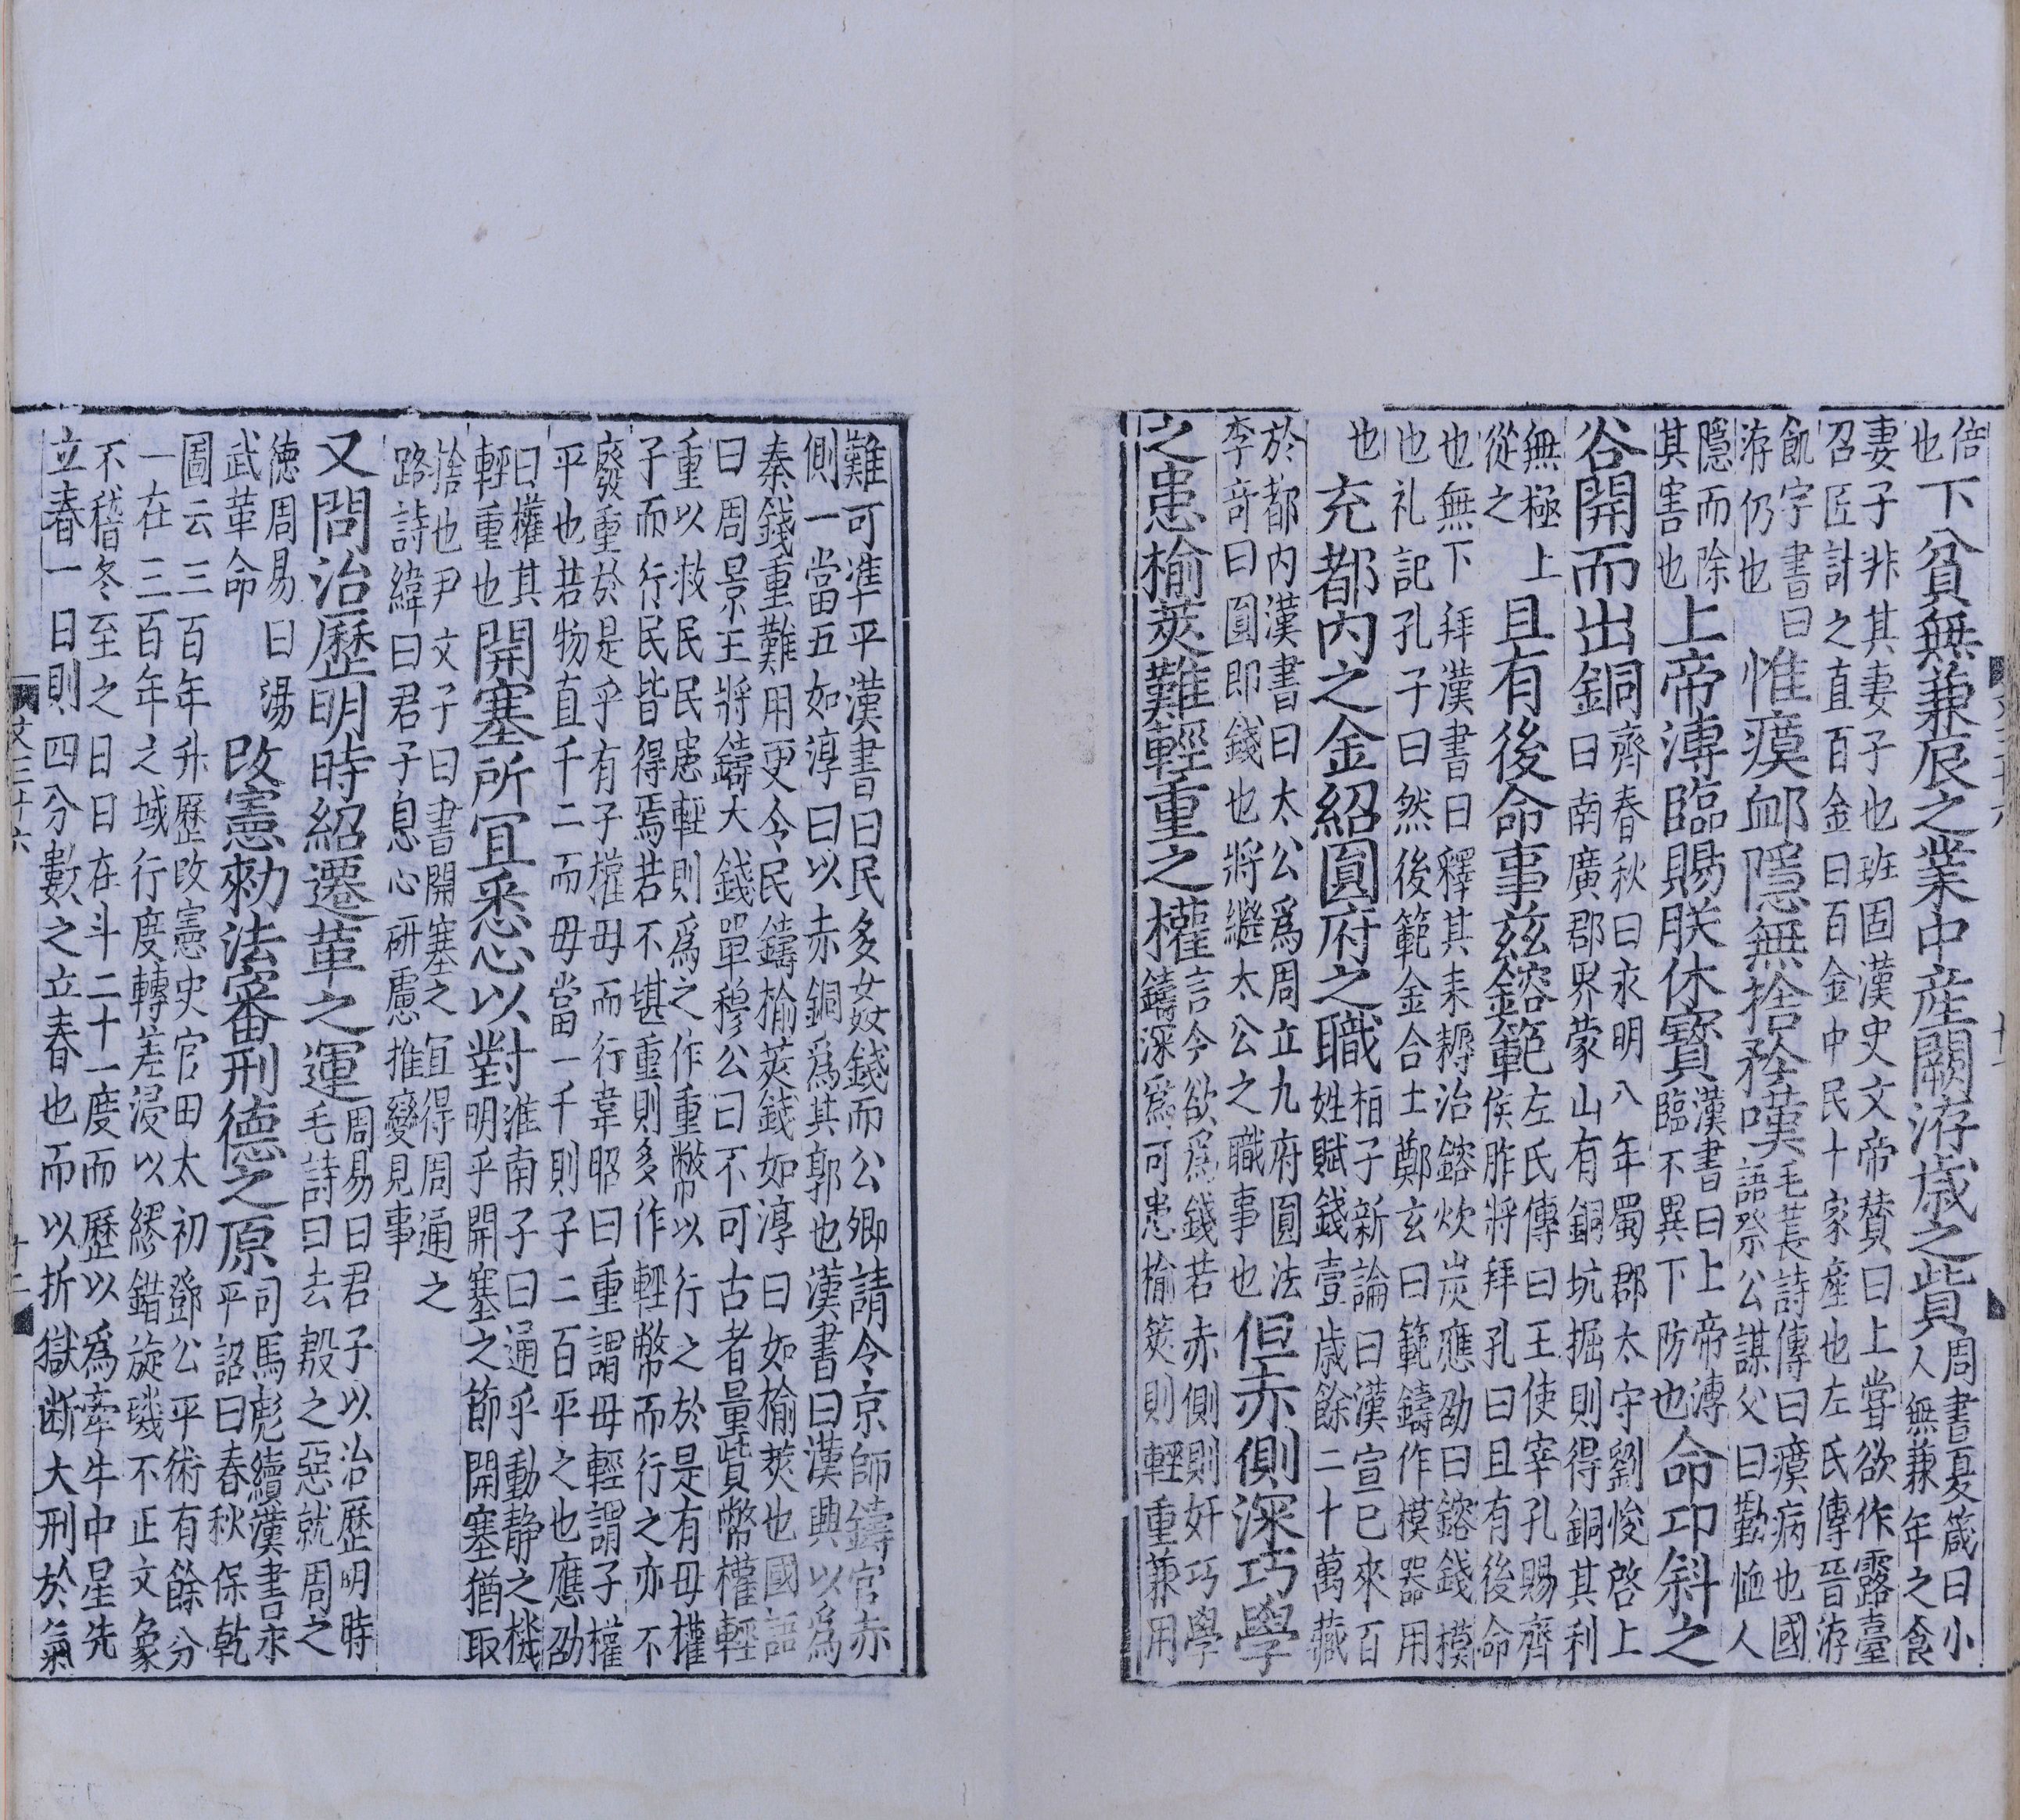 倍也下貧無兼辰之業中産闕洊歳之貲周書夏箴曰小人無兼年之食
妻子非其妻子也班固漢史文帝賛曰上甞欲作露臺
召匠計之直百金曰百金中民十家産也左氏傳晉洊
飢字書曰洊仍也惟瘼卹隱無捨矜嘆毛萇詩傳曰瘼病也國語祭公謀父曰勤恤人
隱而除其害也上帝溥臨賜朕休寳漢書曰上帝溥臨不異下防也命卭斜之
谷開而出銅齊春秋曰永明八年蜀郡太守劉悛啓上曰南廣郡界蒙山有銅坑掘則得銅其利
無極上從之且有後命事兹鎔範左氏傳曰王使宰孔賜齊侯胙將拜孔曰且有後命
也無下拜漢書曰釋其耒耨治鎔炊炭應劭曰鎔錢模
也礼記孔子曰然後範金合土鄭玄曰範鑄作模器用
也充都内之金紹圓府之職桓子新論曰漢宣已來百姓賦錢壹歳餘二十萬藏
於都内漢書曰太公爲周立九府圓法李竒曰圓即錢也將繼太公之職事也但赤側深巧學
之患榆莢難輕重之權言今欲爲錢若赤側則奸巧學鑄深爲可患榆筴則輕重兼用
難可準平漢書曰民多姧錢而公卿請令京師鑄官赤
側一當五如淳曰以赤銅爲其郭也漢書曰漢興以爲
秦錢重難用更令民鑄榆莢錢如淳曰如榆莢也國語
曰周景王將鑄大錢單穆公曰不可古者量貲幣權輕
重以救民民患輕則爲之作重幣以行之於是有毋權
子而行民皆得焉若不堪重則多作輕幣而行之亦不
廢重於是乎有子權毋而行韋昭曰重謂毋輕謂子權
平也若物直千二而毋當一千則子二百平之也應劭
曰權其輕重也開塞所冝悉心以對淮南子曰通乎動静之機明乎開塞之節開塞猶取
捨也尹文子曰書開塞之冝得周通之
路詩緯曰君子息心研慮推變見事
又問治歷明時紹遷革之運周易曰君子以治歷明時毛詩曰去殷之惡就周之
徳周易曰湯武革命改憲勑法審刑德之原司馬彪續漢書永平詔曰春秋保乾
圖云三百年升歷改憲史官田太初鄧公平術有餘分
一在三百年之域行度轉差浸以繆錯旋璣不正文象
不稽冬至之日日在斗二十一度而歷以爲牽牛中星先
立春一日則四分數之立春也而以折獄断大刑於氣
文三十六
十二